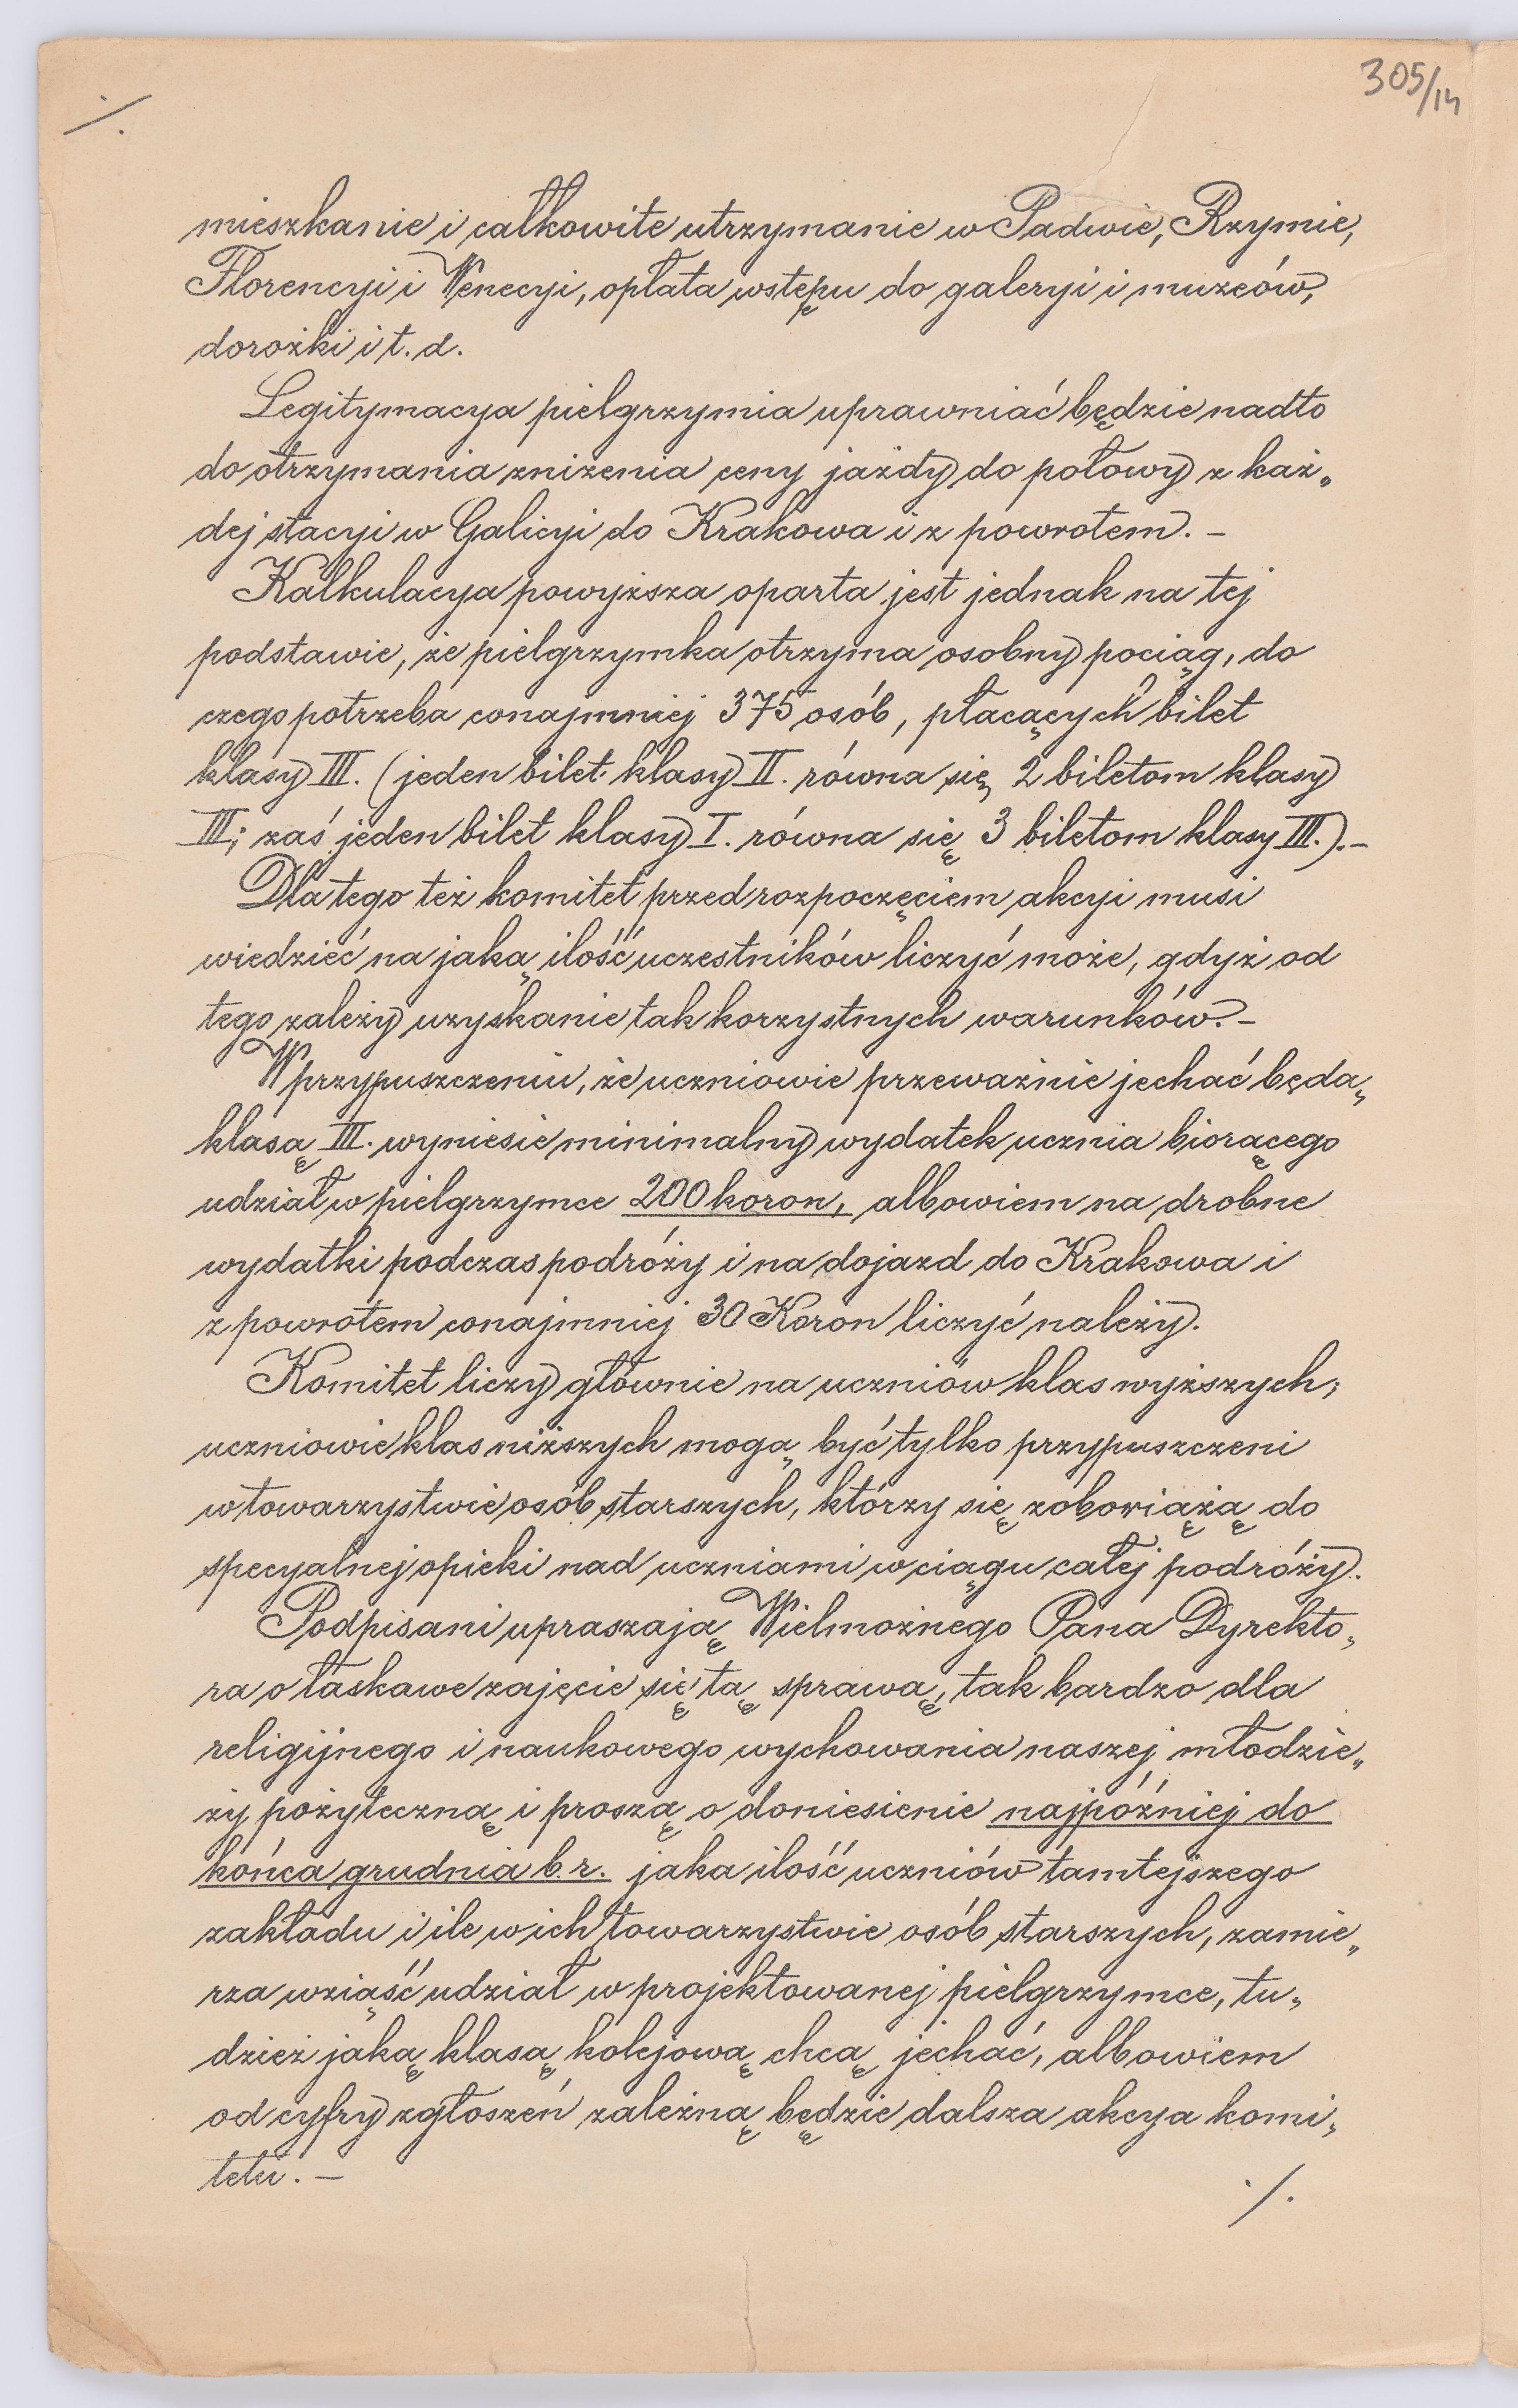 305/14
./.
mieszkanie i całkowite utrzymanie w Padwie, Rzymie,
Florencyi i Wenecyi, opłata wstępu do galeryi i muzeów,
dorożki i t. d.
Legitymacya pielgrzymia uprawniać będzie nadto
do otrzymania zniżenia ceny jazdy do połowy z każ„
dej stacyi w Galicyi do Krakowa i z powrotem. –
Kalkulacya powyższa oparta jest jednak na tej
podstawie, że pielgrzymka otrzyma osobny pociąg, do
czego potrzeba conajmniej 375 osób, płacących bilet
klasy III. (jeden bilet klasy II. równa się 2 biletom klasy
III; zaś jeden bilet klasy I. równa się 3 biletom klasy III.). –
Dlatego też komitet przed rozpoczęciem akcyi musi
wiedzieć na jaką ilość uczestników liczyć może, gdyż od
tego zależy uzyskanie tak korzystnych warunków. –
W przypuszczeniu, że uczniowie przeważnie jechać będą
klasą III. wyniesie minimalny wydatek ucznia biorącego
udział w pielgrzymce 200 koron, albowiem na drobne
wydatki podczas podróży i na dojazd do Krakowa i
z powrotem conajmniej 30 Koron liczyć należy.
Komitet liczy głównie na uczniów klas wyższych;
uczniowie klas niższych mogą być tylko przypuszczeni
w towarzystwie osób starszych, którzy się zobowiążą do
specyalnej opieki nad uczniami w ciągu całej podróży.
Podpisani upraszają Wielmożnego Pana Dyrekto„
ra o łaskawe zajęcie się tą sprawą, tak bardzo dla
religijnego i naukowego wychowania naszej młodzie„
ży pożyteczną i proszą o doniesienie najpóźniej do
końca grudnia b. r. jaka ilość uczniów tamtejszego
zakładu i ile w ich towarzystwie osób starszych, zamie„
rza wziąść udział w projektowanej pielgrzymce, tu„
dzież jaką klasą kolejową chcą jechać, albowiem
od cyfry zgłoszeń zależną będzie dalsza akcya komi„
tetu. –
./.